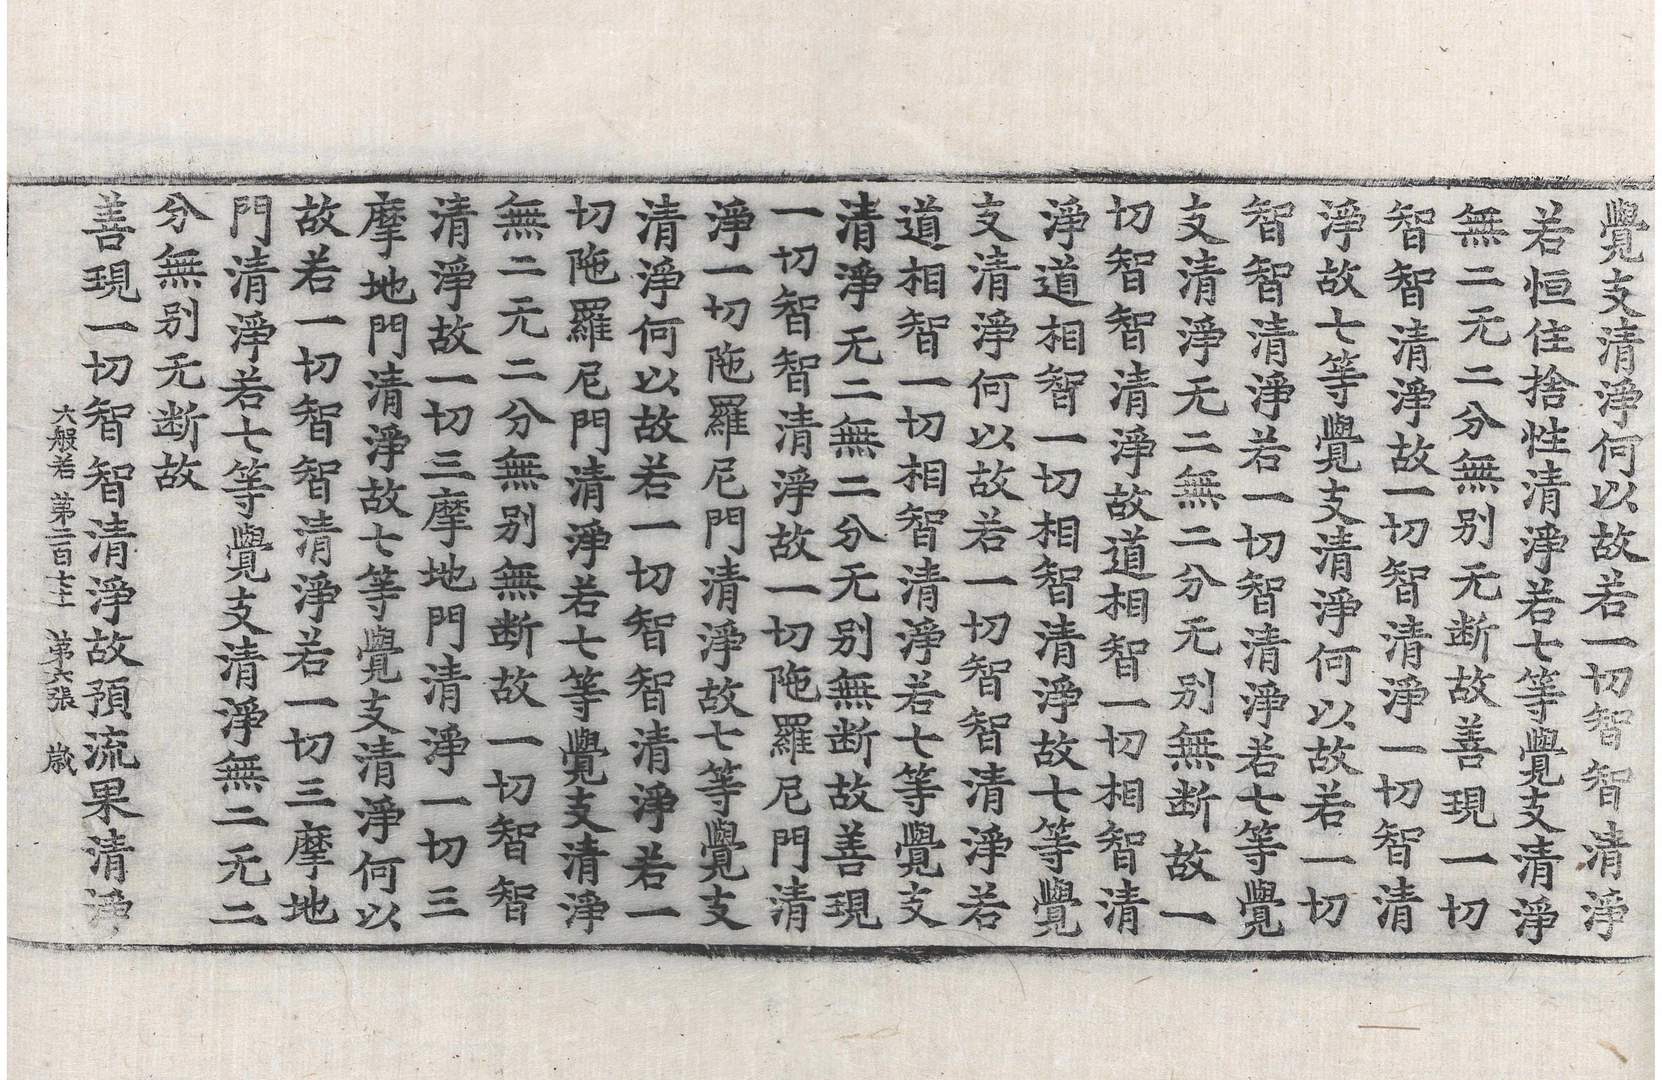 覺支清淨何以故若一切智智清淨
若恒住捨性清淨若七等覺支清淨
無二无二分無別无断故善現一切
智智清淨故一切智清淨一切智清
淨故七等覺支清淨何以故若一切
智智清淨若一切智清淨若七等覺
支清淨无二無二分无別無断故一
切智智清淨故道相智一切相智清
淨道相智一切相智清淨故七等覺
支清淨何以故若一切智智清淨若
道相智一切相智清淨若七等覺支
清淨无二無二分无別無断故善現
一切智智清淨故一切陁羅尼門清
淨一切陁羅尼門清淨故七等覺支
清淨何以故若一切智智清淨若一
切陁羅尼門清淨若七等覺支清淨
無二无二分無別無断故一切智智
清淨故一切三摩地門清淨一切三
摩地門清淨故七等覺支清淨何以
故若一切智智清淨若一切三摩地
門清淨若七等覺支清淨無二无二
分無別无断故
善現一切智智清淨故預流果清淨
大般若 第二百七十 第六張 歲